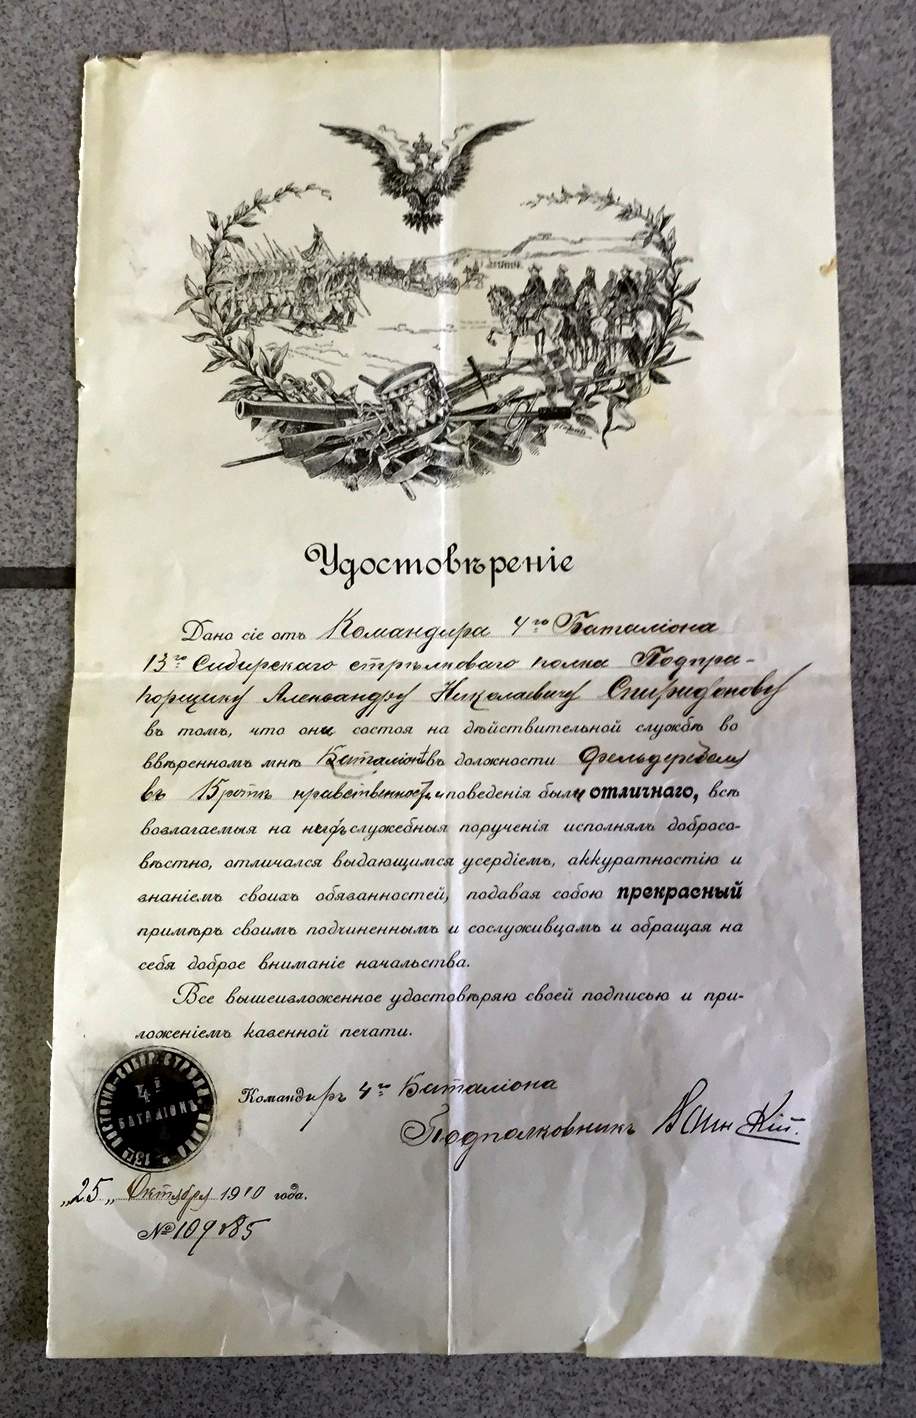 Удостовѣреніе
Дано сіе отъ Командира 4го Баталіона
13го Сибирскаго стрѣлковаго полка Подпра-
порщику Александру Николаевичу Спиридонову
въ томъ, что онъ состоя на дѣйствительной службѣ во
ввѣренномъ мнѣ Баталіонѣ въ должности Фельдфебеля
въ 15 ротѣ нравственности и поведенія былъ отличнаго, всѣ
возлагаемыя на него служебныя порученія исполнялъ добросо-
вѣстно, отличался выдающимся усердіемъ, аккуратностію и
знаніемъ своихъ обязанностей, подавая собою прекрасный
примѣръ своимъ подчиненнымъ и сослуживцамъ и обращая на
себя доброе вниманіе начальства.
Все вышеизложенное удостовѣряю своей подписью и при-
ложеніемъ казенной печати.
Командиръ 4го Баталіона
Подполковникъ
13го ВОСТОЧНО-СИБИР. СТРѢЛК. ПОЛКА
4й
БАТАЛІОНЪ
„25„ Октября 1910 года.
№